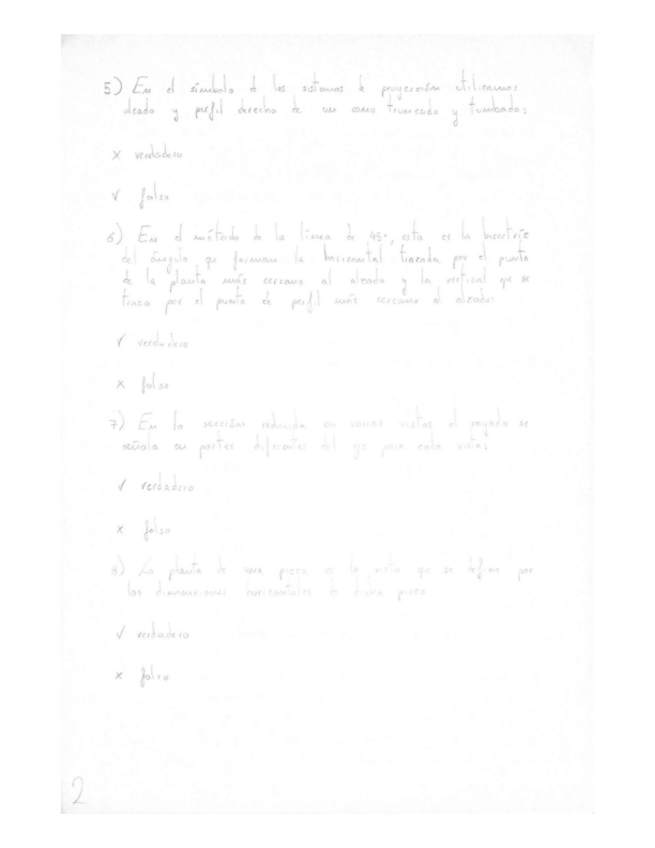 5) En el símbolo d los sistemas de proyección utilizamos
alzado y perfil derecho de un cono truncado y tumbado:
x verdadero
√ falso
6) En el método de la línea de 45°, esta es la bisectriz
del ángulo que forman la horizontal trazada por el punto
de la planta más cercano al alzado y la vertical que se
traza por el punto de perfil más cercano al alzado:
√ verdadero
x falso
7) En la sección reducida en varias vistas el rayado se
señala en partes diferentes del eje para cada vista:
√ verdadero
x falso
8) La planta de una pieza es la vista que se define por
las dimensiones horizontales de dicha pieza
√ verdadero
x falso
2